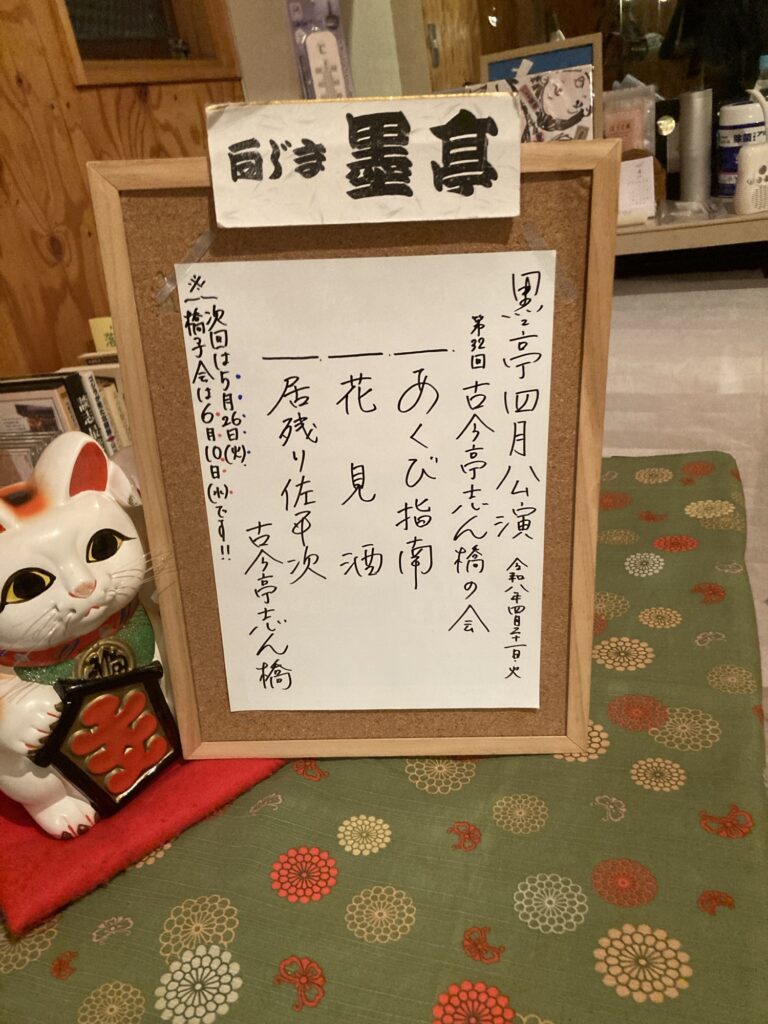 向じま 墨亭
墨亭四月公演 令和八年四月二十一日・火
第32回 古今亭志ん橋の会
一 あくび指南
一 花見酒
一 居残り佐平次
古今亭志ん橋
※ 次回は5月26日(火)
橋子会は6月10日(水)です!!
除菌